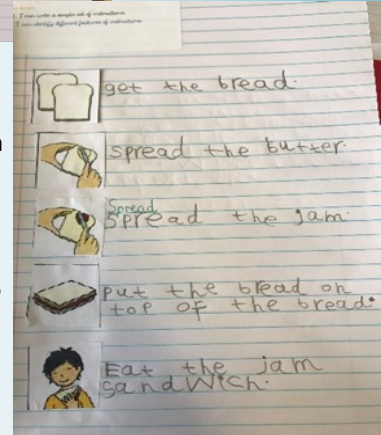 I can write a simple set of instructions.
I can identify different features of instructions.
get the bread.
spread the butter.
Spread
spread the jam.
put the bread on
top of the bread.
Eat the jam
sandwich.